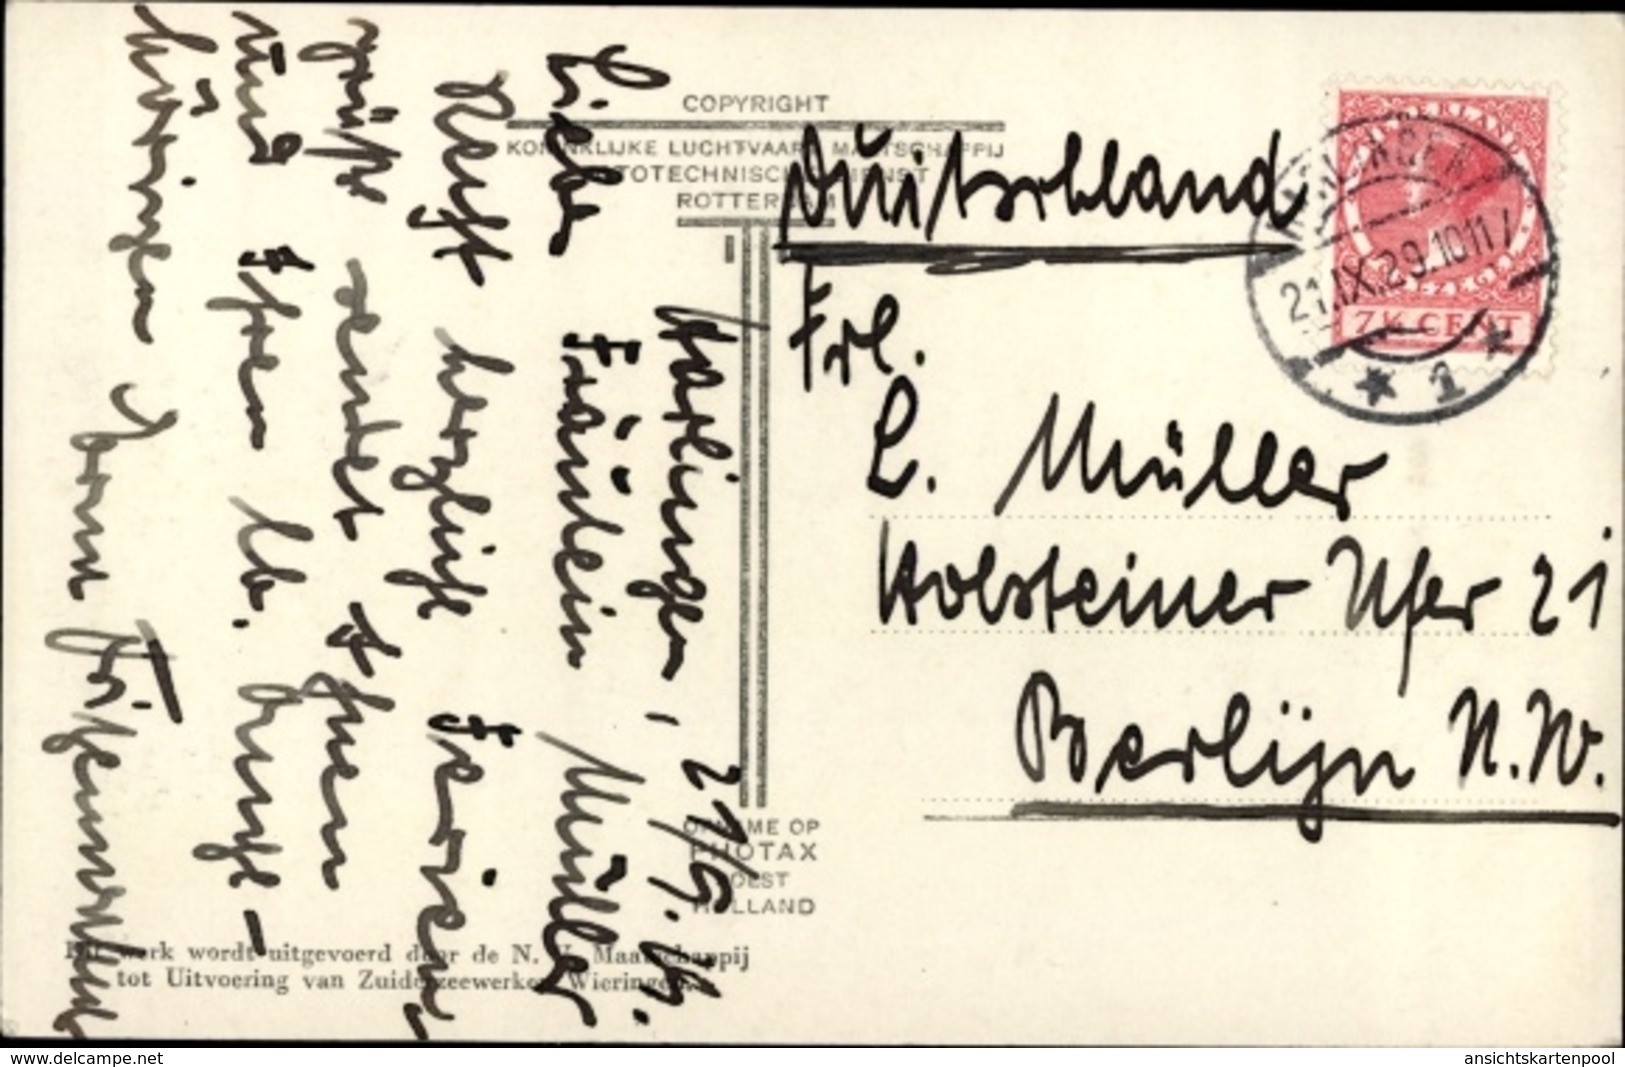 COPYRIGHT
KONINKLIJKE LUCHTVAART MAATSCHAPPIJ
FOTOTECHNISCHE DIENST
ROTTERDAM
OPNAME OP
PHOTAX
SOEST
HOLLAND
Dit werk wordt uitgevoerd door de N. V. Maatschappij
tot Uitvoering van Zuiderzeewerken Wieringen.
Harlingen, 21/9. 29.
Liebe Fräulein Müller
Recht herzliche Ferien
grüße sendet Ihnen
und Ihren lb.
NEDERLAND
7½ CENT
HARLINGEN
21.IX.29.10-11 V
1
Duitschland
Frl.
L. Müller
Holsteiner Ufer 21
Berlijn N.W.
www.delcampe.net
ansichtskartenpool